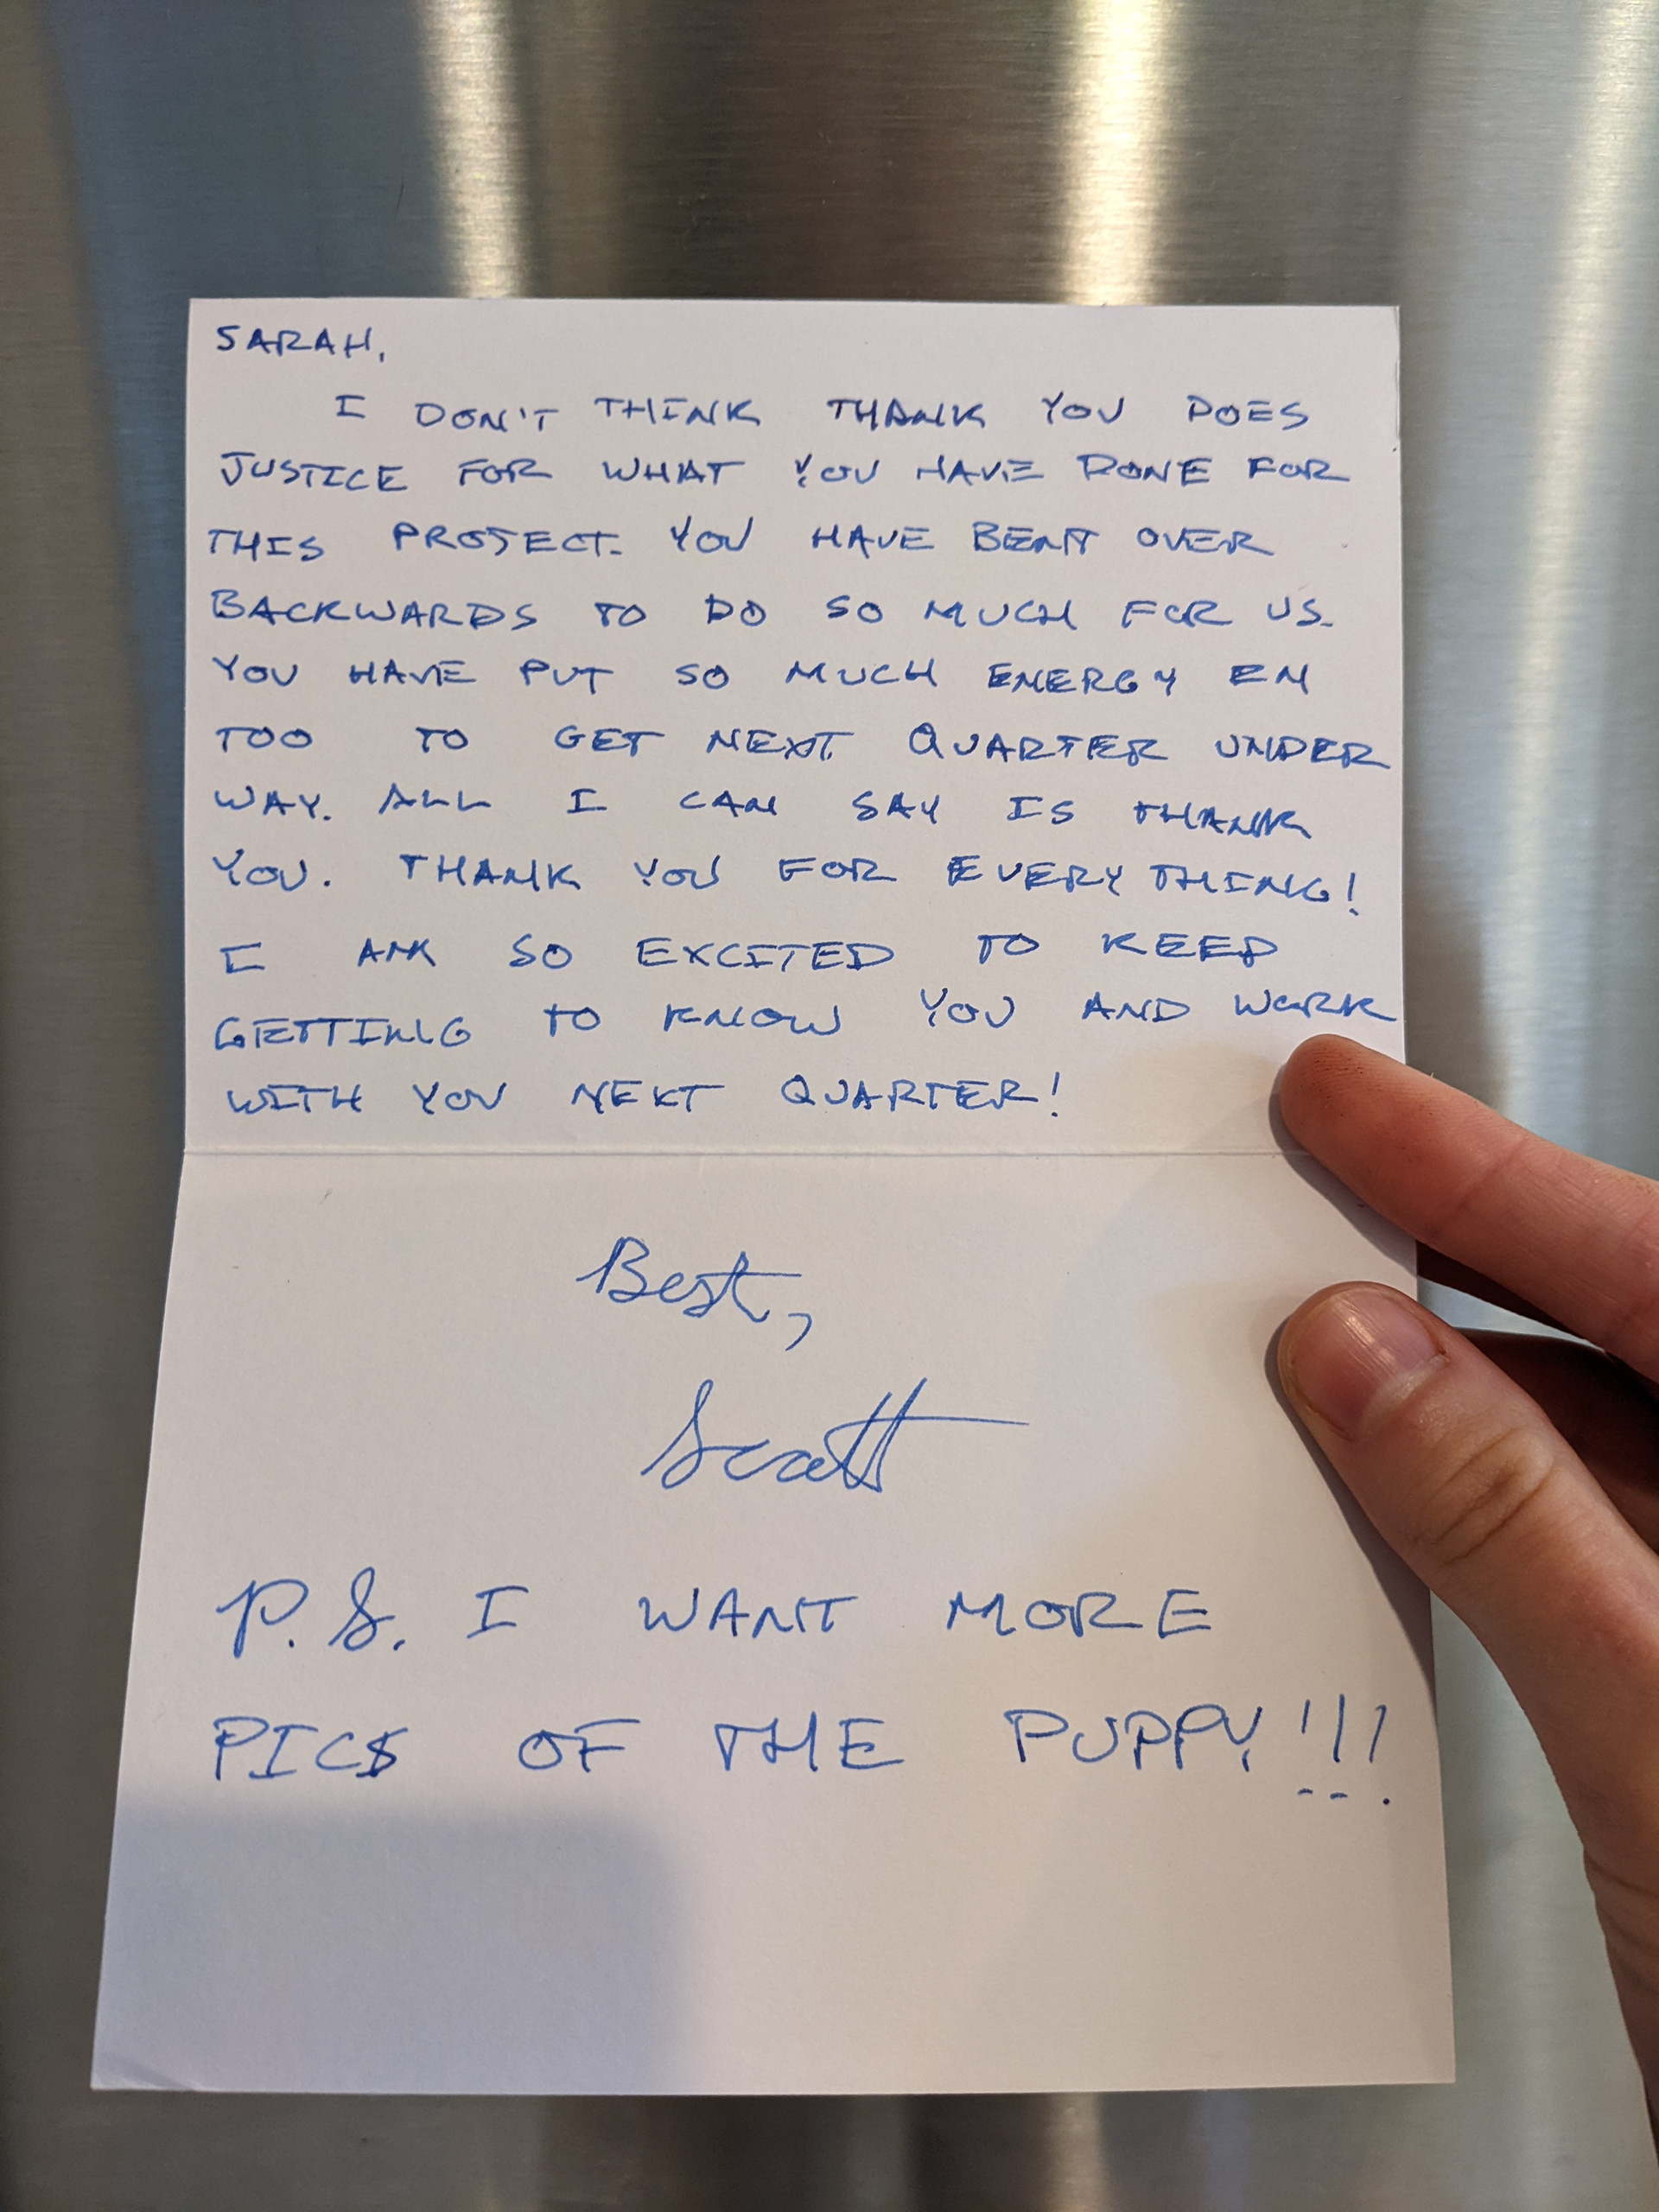 SARAH,
I DON'T THINK THANK YOU DOES
JUSTICE FOR WHAT YOU HAVE DONE FOR
THIS PROJECT. YOU HAVE BENT OVER
BACKWARDS TO DO SO MUCH FOR US.
YOU HAVE PUT SO MUCH ENERGY EN
TOO TO GET NEXT QUARTER UNDER
WAY. ALL I CAN SAY IS THANK
YOU. THANK YOU FOR EVERYTHING!
I AM SO EXCITED TO KEEP
GETTING TO KNOW YOU AND WORK
WITH YOU NEXT QUARTER!
Best,
Scott
P.S. I WANT MORE
PICS OF THE PUPPY!!!